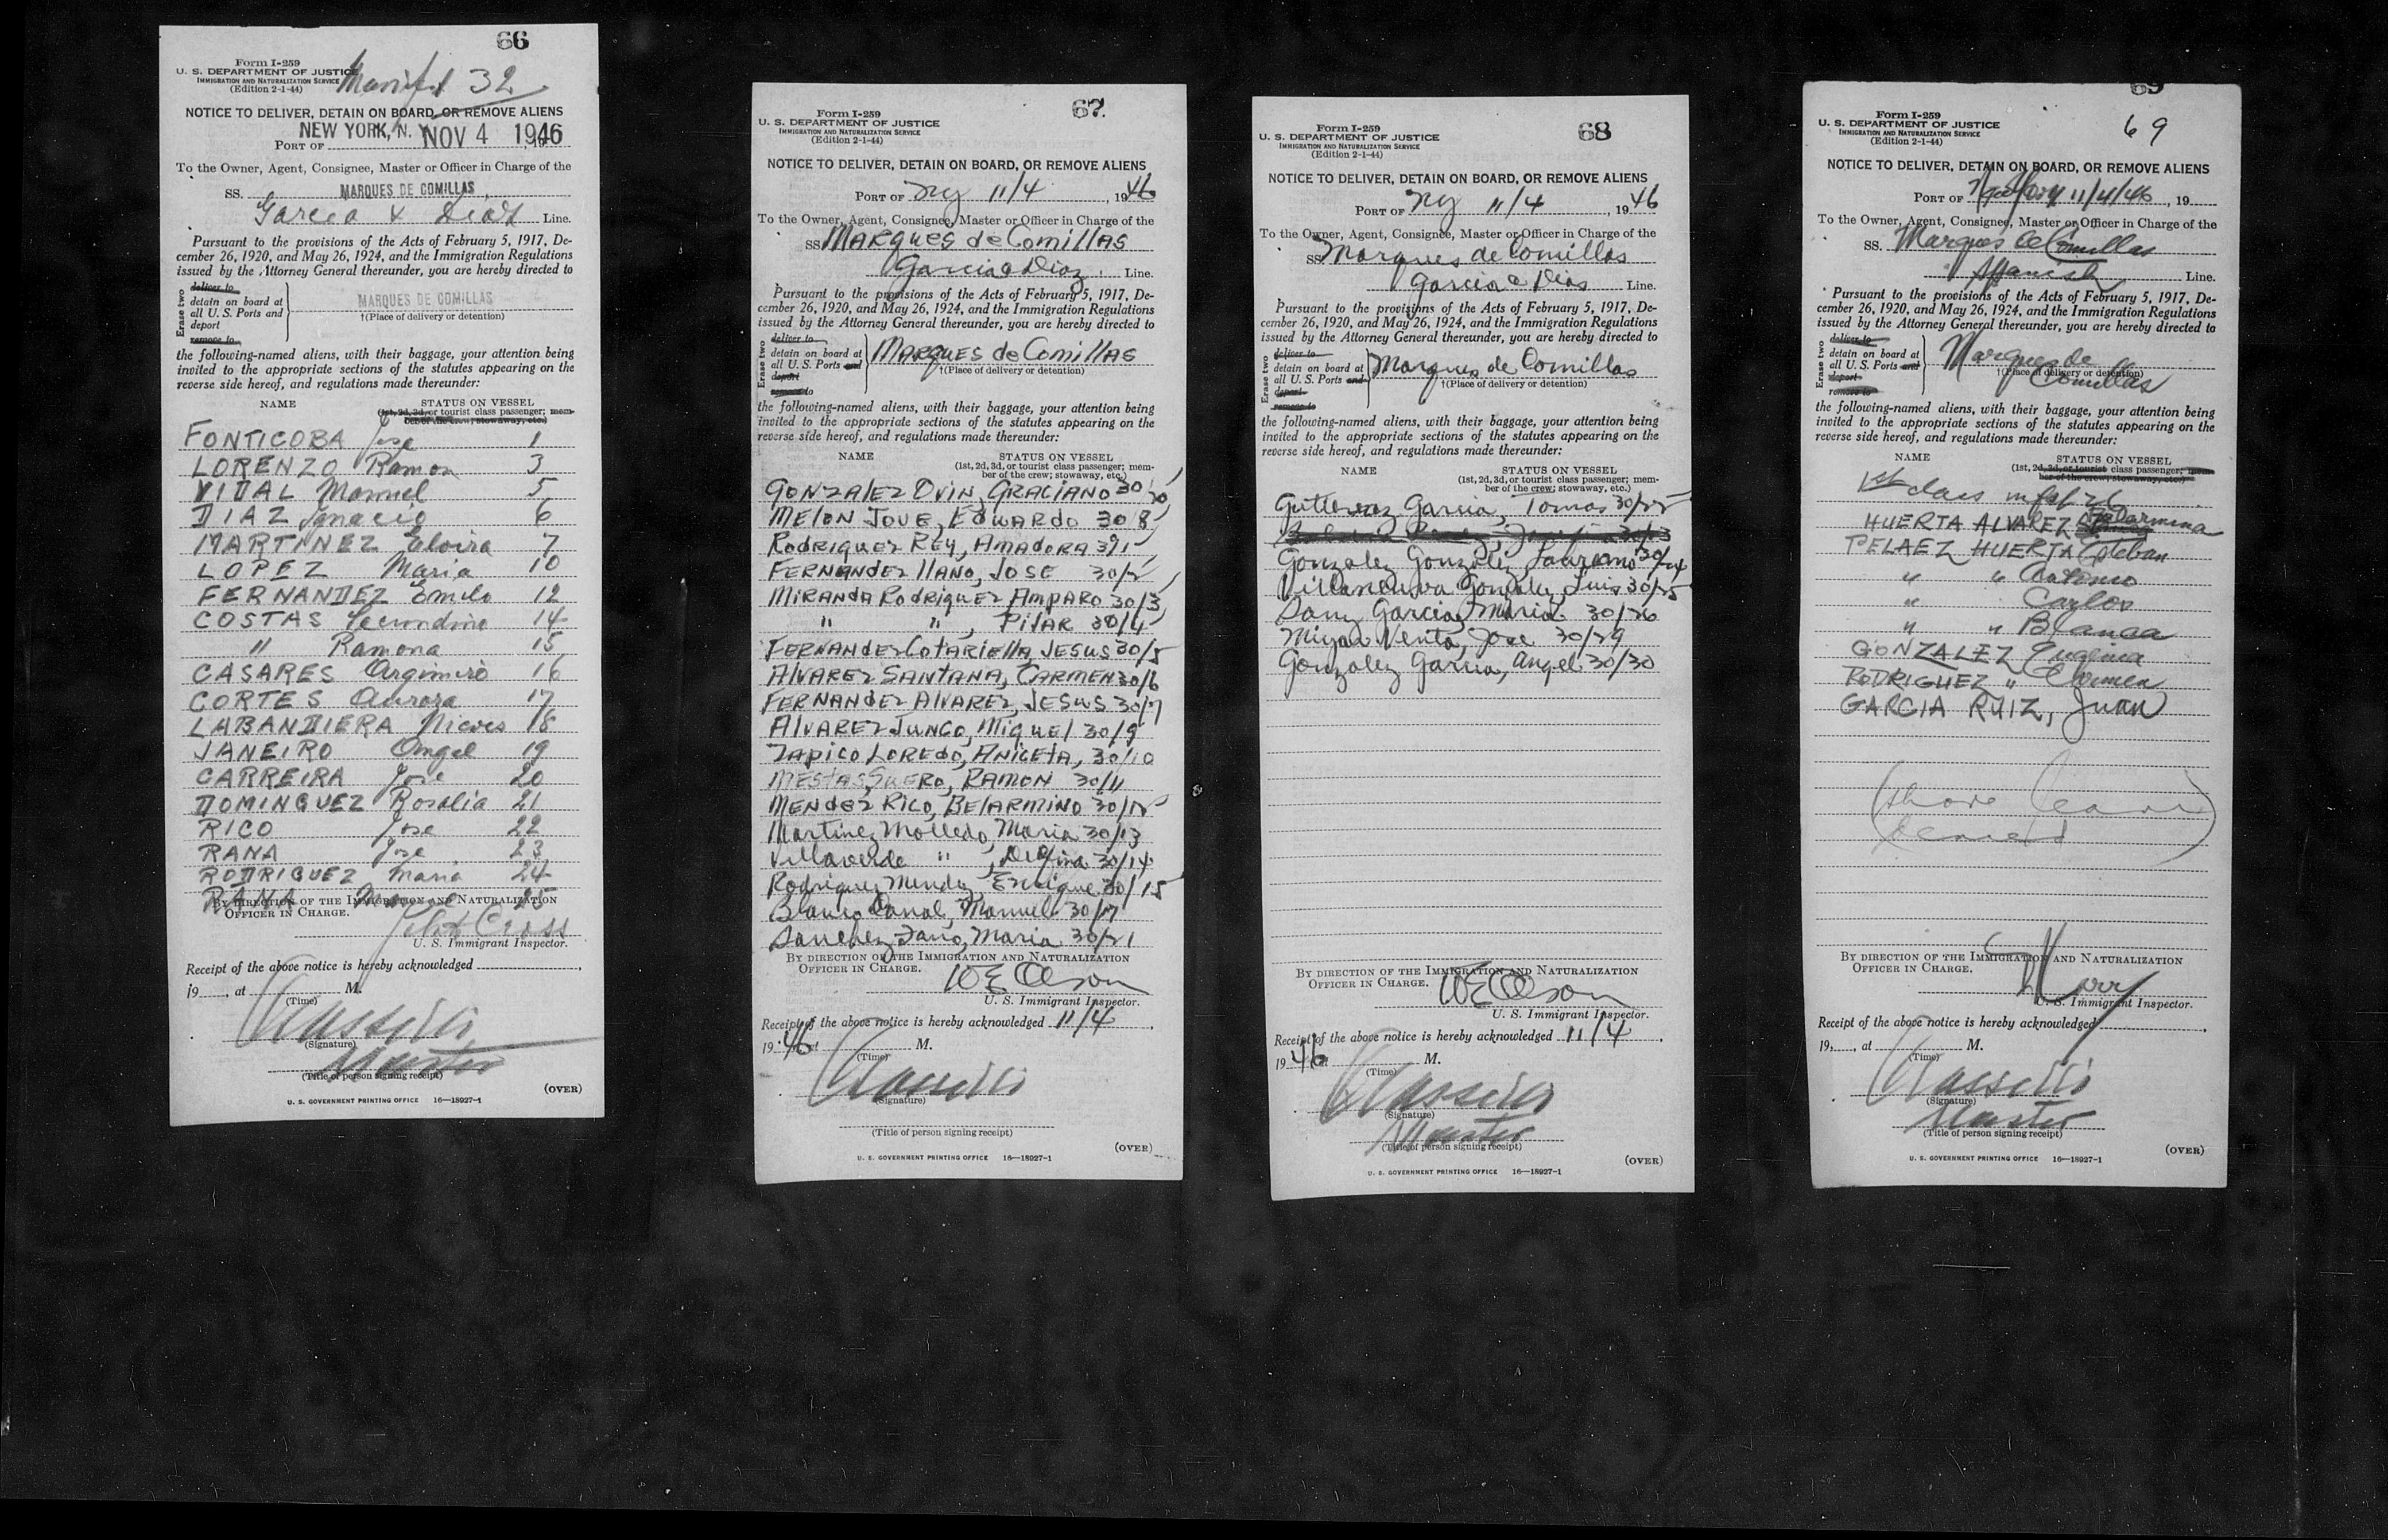 66
Form I-259
U. S. DEPARTMENT OF JUSTICE
IMMIGRATION AND NATURALIZATION SERVICE
(Edition 2-1-44)
Manifest 32
NOTICE TO DELIVER, DETAIN ON BOARD, OR REMOVE ALIENS
NEW YORK, N. Y. NOV 4 1946
PORT OF
To the Owner, Agent, Consignee, Master or Officer in Charge of the
SS. MARQUES DE COMILLAS
Garcia & Diaz Line.
Pursuant to the provisions of the Acts of February 5, 1917, De-
cember 26, 1920, and May 26, 1924, and the Immigration Regulations
issued by the Attorney General thereunder, you are hereby directed to
Erase two
deliver to
detain on board at
all U. S. Ports and
deport
remove to
MARQUES DE COMILLAS
†(Place of delivery or detention)
the following-named aliens, with their baggage, your attention being
invited to the appropriate sections of the statutes appearing on the
reverse side hereof, and regulations made thereunder:
NAME STATUS ON VESSEL
(1st, 2d, 3d, or tourist class passenger; mem-
ber of the crew; stowaway, etc.)
FONTICOBA Jose 1
LORENZO Ramon 3
VIDAL Manuel 5
DIAZ Ignacio 6
MARTINEZ Elvira 7
LOPEZ Maria 10
FERNANDEZ Emilo 12
COSTAS Secundino 14
" Ramona 15
CASARES Argimiro 16
CORTES Aurora 17
LABANDIERA Nieves 18
JANEIRO Angel 19
CARREIRA Jose 20
DOMINGUEZ Rosalia 21
RICO Jose 22
RANA Jose 23
RODRIGUEZ Maria 24
RANA 25
BY DIRECTION OF THE IMMIGRATION AND NATURALIZATION
OFFICER IN CHARGE.
U. S. Immigrant Inspector.
Receipt of the above notice is hereby acknowledged
19 , at M.
(Time)
(Signature)
Master
(Title of person signing receipt)
(OVER)
U. S. GOVERNMENT PRINTING OFFICE 16—18927-1
67.
Form I-259
U. S. DEPARTMENT OF JUSTICE
IMMIGRATION AND NATURALIZATION SERVICE
(Edition 2-1-44)
NOTICE TO DELIVER, DETAIN ON BOARD, OR REMOVE ALIENS
PORT OF NY 11/4, 1946
To the Owner, Agent, Consignee, Master or Officer in Charge of the
SS MARQUES de COMILLAS
Garcia & Diaz Line.
Pursuant to the provisions of the Acts of February 5, 1917, De-
cember 26, 1920, and May 26, 1924, and the Immigration Regulations
issued by the Attorney General thereunder, you are hereby directed to
Erase two
deliver to
detain on board at
all U. S. Ports and
deport
remove to
MARQUES de COMILLAS
†(Place of delivery or detention)
the following-named aliens, with their baggage, your attention being
invited to the appropriate sections of the statutes appearing on the
reverse side hereof, and regulations made thereunder:
NAME STATUS ON VESSEL
(1st, 2d, 3d, or tourist class passenger; mem-
ber of the crew; stowaway, etc.)
GONZALEZ OVIN, GRACIANO 30/20
MELON JOVE, EDUARDO 30/8
RODRIGUEZ REY, AMADORA 30/1
FERNANDEZ LLANO, JOSE 30/2
MIRANDA RODRIGUEZ AMPARO 30/3
" ", PILAR 30/4
FERNANDEZ COTARIELLA, JESUS 30/5
ALVAREZ SANTANA, CARMEN 30/6
FERNANDEZ ALVAREZ, JESUS 30/7
ALVAREZ JUNCO, MIGUEL 30/9
ZAPICO LOREDO, ANICETA, 30/10
MESTAS SUERO, RAMON 30/11
MENDEZ RICO, BELARMINO 30/12
Martinez Molledo, Maria 30/13
Villaverde ", Delfina 30/14
Rodriguez Mendez, Enrique 30/15
Blanco Canal, Manuel 30/17
Sanchez Fano, Maria 30/21
BY DIRECTION OF THE IMMIGRATION AND NATURALIZATION
OFFICER IN CHARGE.
WE Olson
U. S. Immigrant Inspector.
Receipt of the above notice is hereby acknowledged 11/4,
1946 at M.
(Time)
(Signature)
(Title of person signing receipt)
(OVER)
U. S. GOVERNMENT PRINTING OFFICE 16—18927-1
68
Form I-259
U. S. DEPARTMENT OF JUSTICE
IMMIGRATION AND NATURALIZATION SERVICE
(Edition 2-1-44)
NOTICE TO DELIVER, DETAIN ON BOARD, OR REMOVE ALIENS
PORT OF NY 11/4, 1946
To the Owner, Agent, Consignee, Master or Officer in Charge of the
SS Marques de Comillas
Garcia & Dias Line.
Pursuant to the provisions of the Acts of February 5, 1917, De-
cember 26, 1920, and May 26, 1924, and the Immigration Regulations
issued by the Attorney General thereunder, you are hereby directed to
Erase two
deliver to
detain on board at
all U. S. Ports and
deport
remove to
Marques de Comillas
†(Place of delivery or detention)
the following-named aliens, with their baggage, your attention being
invited to the appropriate sections of the statutes appearing on the
reverse side hereof, and regulations made thereunder:
NAME STATUS ON VESSEL
(1st, 2d, 3d, or tourist class passenger; mem-
ber of the crew; stowaway, etc.)
Gutierrez Garcia, Tomas 30/22
30/23
Gonzalez Gonzalez, Laureano 30/24
Villanueva Gonzalez, Luis 30/25
Sanz Garcia, Maria 30/26
Miyar Venta, Jose 30/29
Gonzalez Garcia, Angel 30/30
BY DIRECTION OF THE IMMIGRATION AND NATURALIZATION
OFFICER IN CHARGE.
WE Olson
U. S. Immigrant Inspector.
Receipt of the above notice is hereby acknowledged 11/4,
1946 at M.
(Time)
(Signature)
Master
(Title of person signing receipt)
(OVER)
U. S. GOVERNMENT PRINTING OFFICE 16—18927-1
69
Form I-259
U. S. DEPARTMENT OF JUSTICE
IMMIGRATION AND NATURALIZATION SERVICE
(Edition 2-1-44)
69
NOTICE TO DELIVER, DETAIN ON BOARD, OR REMOVE ALIENS
PORT OF New York 11/4/46, 19
To the Owner, Agent, Consignee, Master or Officer in Charge of the
SS. Marques de Comillas
Spanish Line.
Pursuant to the provisions of the Acts of February 5, 1917, De-
cember 26, 1920, and May 26, 1924, and the Immigration Regulations
issued by the Attorney General thereunder, you are hereby directed to
Erase two
deliver to
detain on board at
all U. S. Ports and
deport
remove to
Marques de
†(Place of delivery or detention)
Comillas
the following-named aliens, with their baggage, your attention being
invited to the appropriate sections of the statutes appearing on the
reverse side hereof, and regulations made thereunder:
NAME STATUS ON VESSEL
(1st, 2d, 3d, or tourist class passenger; mem-
ber of the crew; stowaway, etc.)
1st class
HUERTA ALVAREZ Belarmina
PELAEZ HUERTA Esteban
" "
" Carlos
" " Blanca
GONZALEZ Eugenia
RODRIGUEZ "
GARCIA RUIZ, Juan
(Shore leave
denied)
BY DIRECTION OF THE IMMIGRATION AND NATURALIZATION
OFFICER IN CHARGE.
U. S. Immigrant Inspector.
Receipt of the above notice is hereby acknowledged
19 , at M.
(Time)
(Signature)
Master
(Title of person signing receipt)
(OVER)
U. S. GOVERNMENT PRINTING OFFICE 16—18927-1